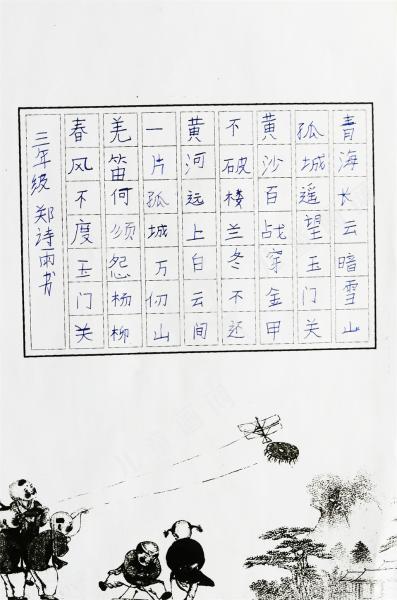 青海长云暗雪山
孤城遥望玉门关
黄沙百战穿金甲
不破楼兰冬不还
黄河远上白云间
一片孤城万仞山
羌笛何须怨杨柳
春风不度玉门关
三年级 郑诗雨书